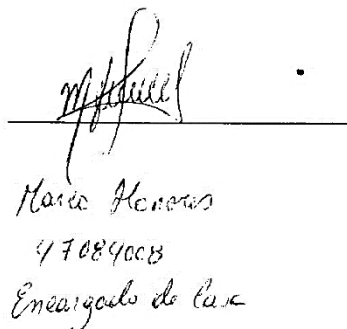 Marco Honores
47084008
Encargado de Casa